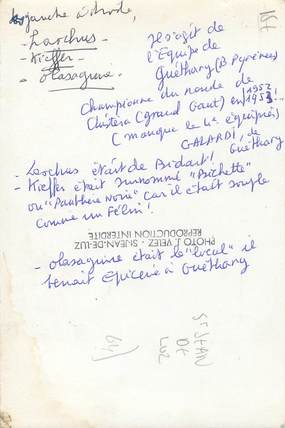 de gauche à droite,
- Larchus -
- Kieffer -
- Olasagarre
Il s'agit de
l'Equipe de
Guéthary (B Pyrénées)
Championne du monde de
Chistera (grand Gant) en 1952
1953!..
(manque le 4e équipier)
GALARDI, de
Guéthary
- Larchus était de Bidart!
- Kieffer était surnommé "Bichette"
ou "Panthère Noire" car il était souple
comme un Félin!
PHOTO J. VELEZ - St-JEAN-DE-LUZ
REPRODUCTION INTERDITE
- Olasaguirre était le "local" il
tenait Epicerie à Guéthary
St JEAN
DE
LUZ
64)